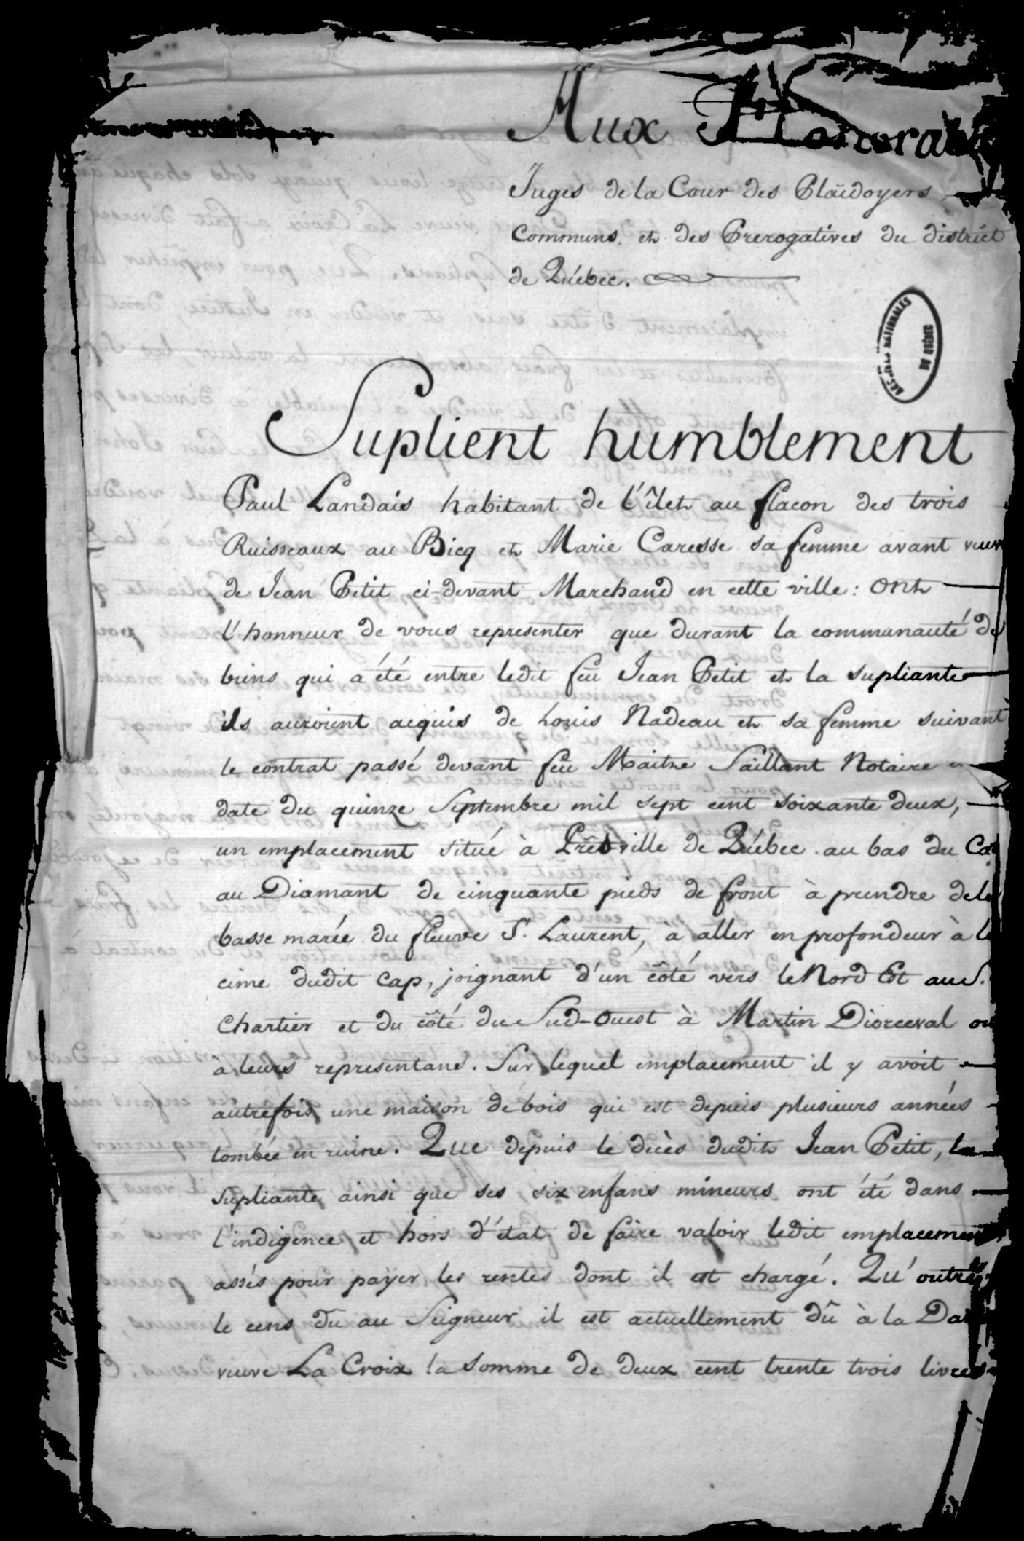 Aux Honorab
Juges de la Cour des Plaidoyers
Communs et des Prerogatives du district
de Québec.
ARCHIVES NATIONALES
DU QUÉBEC
Suplient humblement
Paul Landais habitant de l'îlet au flacon des trois
Ruisseaux au Bicq et Marie Caresse sa femme avant veuve
de Jean Petit ci-devant Marchand en cette ville: ont
l'honneur de vous representer que durant la communauté de
biens qui a été entre ledit feu Jean Petit et la supliante
ils auroient acquis de Louis Nadeau et sa femme suivant
le contrat passé devant feu Maitre Saillant Notaire en
date du quinze Septembre mil sept cent soixante deux,
un emplacement situé à Prêdville de Québec au bas du Cap
au Diamant de cinquante pieds de front à prendre de la
basse marée du fleuve St. Laurent, à aller en profondeur à la
cime dudit cap, joignant d'un côté vers le Nord Est au S.
Chartier et du côté du Sud-Ouest à Martin Dioreeval ou
à leurs representans. Sur lequel emplacement il y avoit
autrefois une maison de bois qui est depuis plusieurs années
tombée en ruine. Que depuis le décès dudit Jean Petit, la
Supliante ainsi que ses six enfans mineurs ont été dans
l'indigence et hors d'état de faire valoir ledit emplacement
assés pour payer les rentes dont il est chargé. Qu'outre
le cens dû au Seigneur il est actuellement dû à la Da
veuve La Croix la somme de deux cent trente trois livres